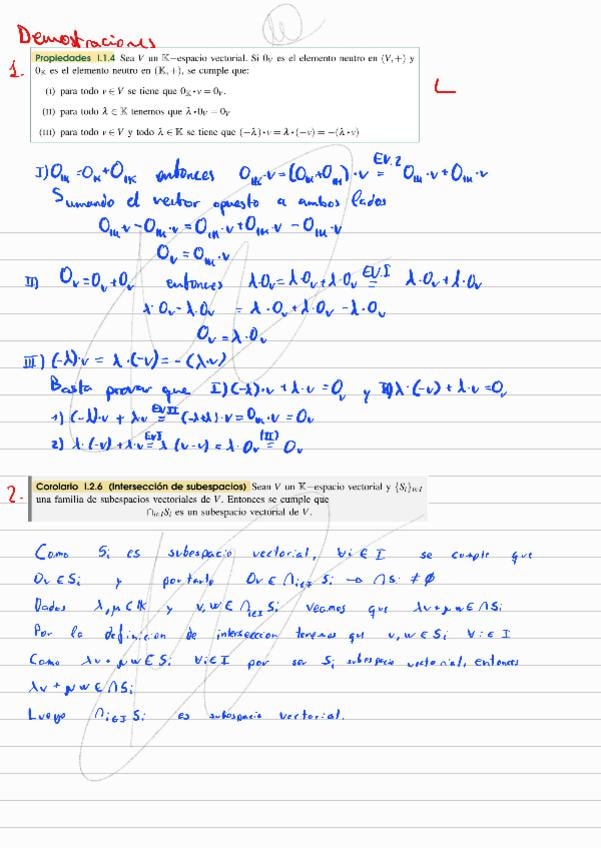 Demostraciones
1. Propiedades I.1.4 Sea V un 𝕂−espacio vectorial. Si 0_V es el elemento neutro en (V,+) y
0_𝕂 es el elemento neutro en (𝕂,+), se cumple que:
(I) para todo v ∈ V se tiene que 0_𝕂•v = 0_V.
(II) para todo λ ∈ 𝕂 tenemos que λ•0_V = 0_V
(III) para todo v ∈ V y todo λ ∈ 𝕂 se tiene que (−λ)•v = λ•(−v) = −(λ•v)
I) 0_𝕂 = 0_𝕂 + 0_𝕂 entonces 0_𝕂·v = (0_𝕂+0_𝕂)·v =^{EV.2} 0_𝕂·v + 0_𝕂·v
Sumando el vector opuesto a ambos lados
0_𝕂·v − 0_𝕂·v = 0_𝕂·v + 0_𝕂·v − 0_𝕂·v
0_V = 0_𝕂·v
II) 0_V = 0_V + 0_V entonces λ·0_V = λ·0_V + λ·0_V =^{EV.I} λ·0_V + λ·0_V
λ·0_V − λ·0_V = λ·0_V + λ·0_V − λ·0_V
0_V = λ·0_V
III) (−λ)·v = λ·(−v) = −(λ·v)
Basta probar que I) (−λ)·v + λ·v = 0_V y II) λ·(−v) + λ·v = 0_V
1) (−λ)·v + λv =^{EVII} (−λ+λ)·v = 0_𝕂·v = 0_V
2) λ·(−v) + λ·v =^{EVI} λ(v−v) = λ·0_V =^{(II)} 0_V
2. Corolario I.2.6 (Intersección de subespacios) Sean V un 𝕂−espacio vectorial y {S_i}_{i∈I}
una familia de subespacios vectoriales de V. Entonces se cumple que
∩_{i∈I}S_i es un subespacio vectorial de V.
Como S_i es subespacio vectorial, ∀i ∈ I se cumple que
0_V ∈ S_i y por tanto 0_V ∈ ∩_{i∈I} S_i → ∩S_i ≠ ∅
Dados λ, μ ∈ 𝕂 y v, w ∈ ∩_{i∈I} S_i veamos que λv + μw ∈ ∩S_i
Por la definicion de interseccion tenemos que v, w ∈ S_i ∀i ∈ I
Como λv + μw ∈ S_i ∀i ∈ I por ser S_i subespacio vectorial, entonces
λv + μw ∈ ∩S_i
Luego ∩_{i∈I} S_i es subespacio vectorial.